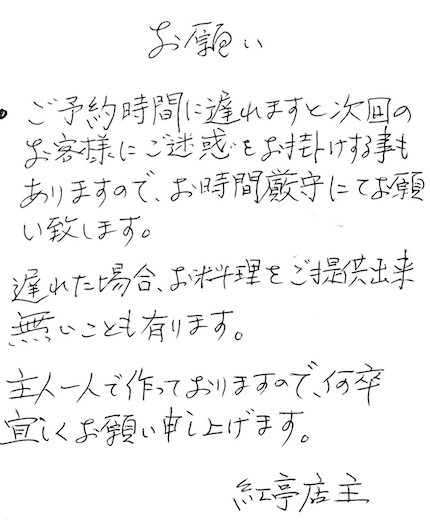 お願い
・ご予約時間に遅れますと次回の
お客様にご迷惑をお掛けする事も
ありますので、お時間厳守にてお願
い致します。
遅れた場合、お料理をご提供出来
無いことも有ります。
主人一人で作っておりますので、何卒
宜しくお願い申し上げます。
紅亭店主